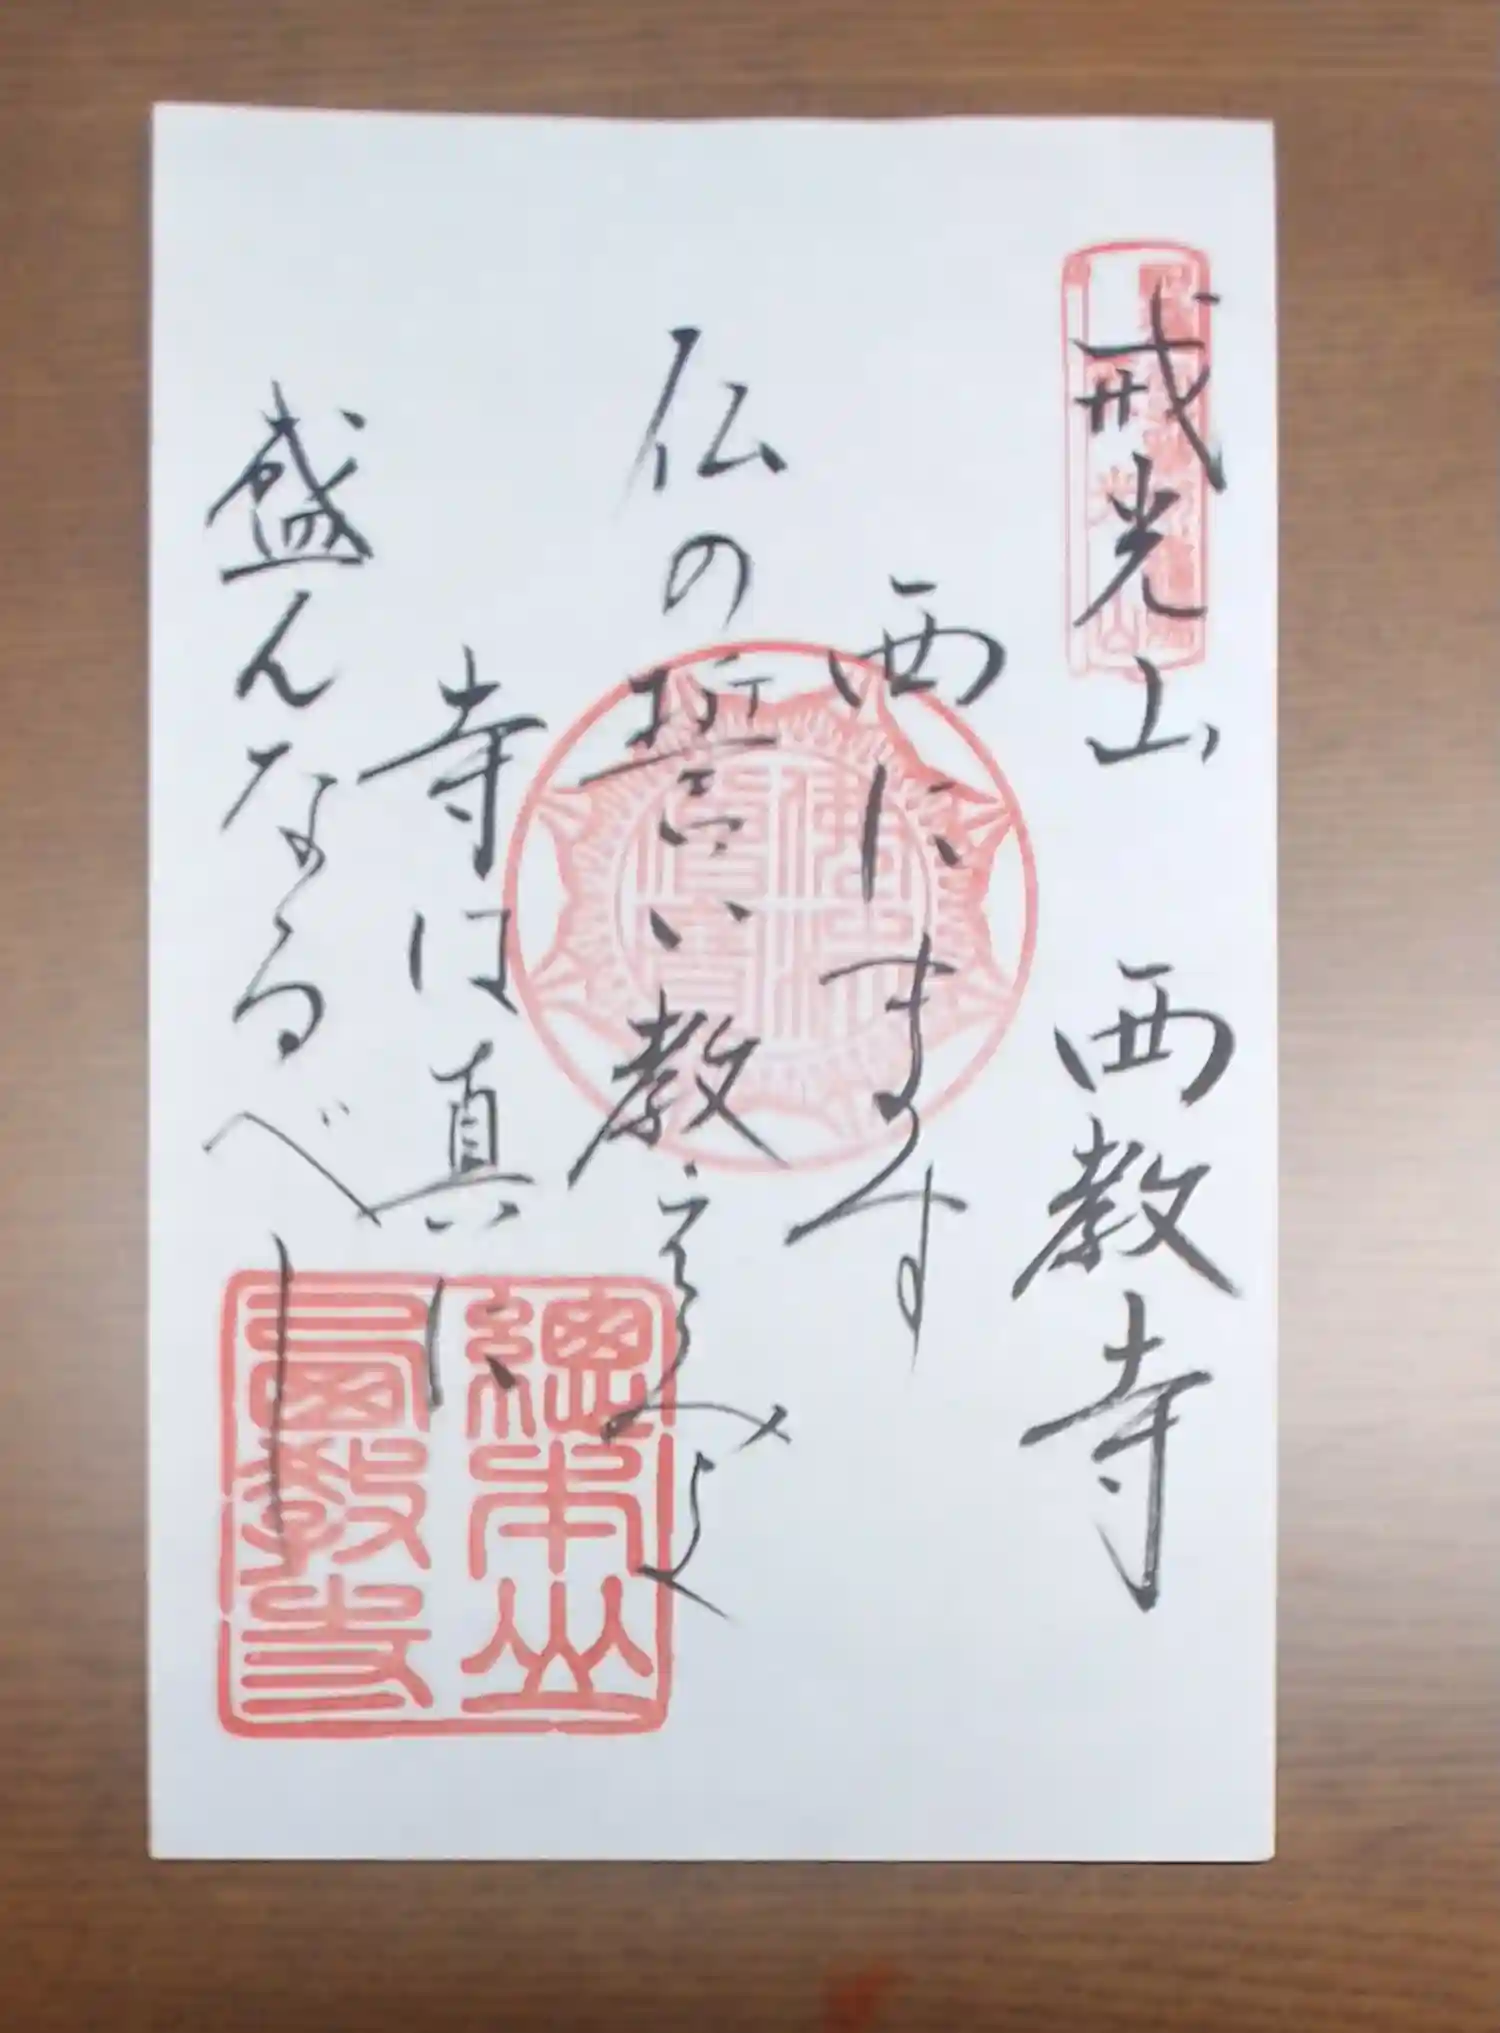 戒光山 西教寺
西にます
仏の誓い教えみよ
寺は真に
盛んなるべし
總本山
西教寺